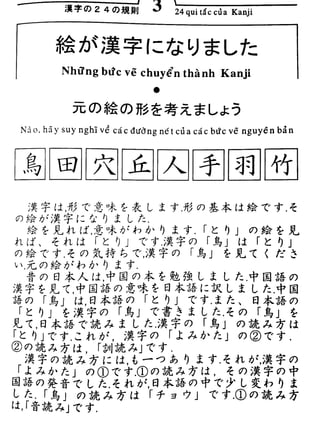 漢字の24の規則
3
24 qui tắc của Kanji
絵が漢字になりました
Những bức vẽ chuyển thành Kanji
●
元の絵の形を考えましょう
Nào, hãy suy nghĩ về các đường nét của các bức vẽ nguyên bản
鳥 田 穴 丘 人 手 羽 竹
漢字は,形で意味を表します.形の基本は絵です.そ
の絵が漢字になりました.
絵を見れば,意味がわかります.「とり」の絵を見
れば、それは「とり」です.漢字の「鳥」は「とり」
の絵です.その気持ちで,漢字の「鳥」を見てくださ
い.元の絵がわかります.
昔の日本人は,中国の本を勉強しました.中国語の
漢字を見て,中国語の意味を日本語に訳しました.中国
語の「鳥」は,日本語の「とり」です.また、日本語の
「とり」を漢字の「鳥」で書きました.その「鳥」を
見て,日本語で読みました.漢字の「鳥」の読み方は
「とり」です.これが，漢字の「よみかた」の②です.
②の読み方は,「訓読み」です.
漢字の読み方には,もう一つあります.それが,漢字の
「よみかた」の①です.①の読み方は，その漢字の中
国語の発音でした.それが,日本語の中で少し変わりま
した.「鳥」の読み方は「チョウ」です.①の読み方
は,「音読み」です.